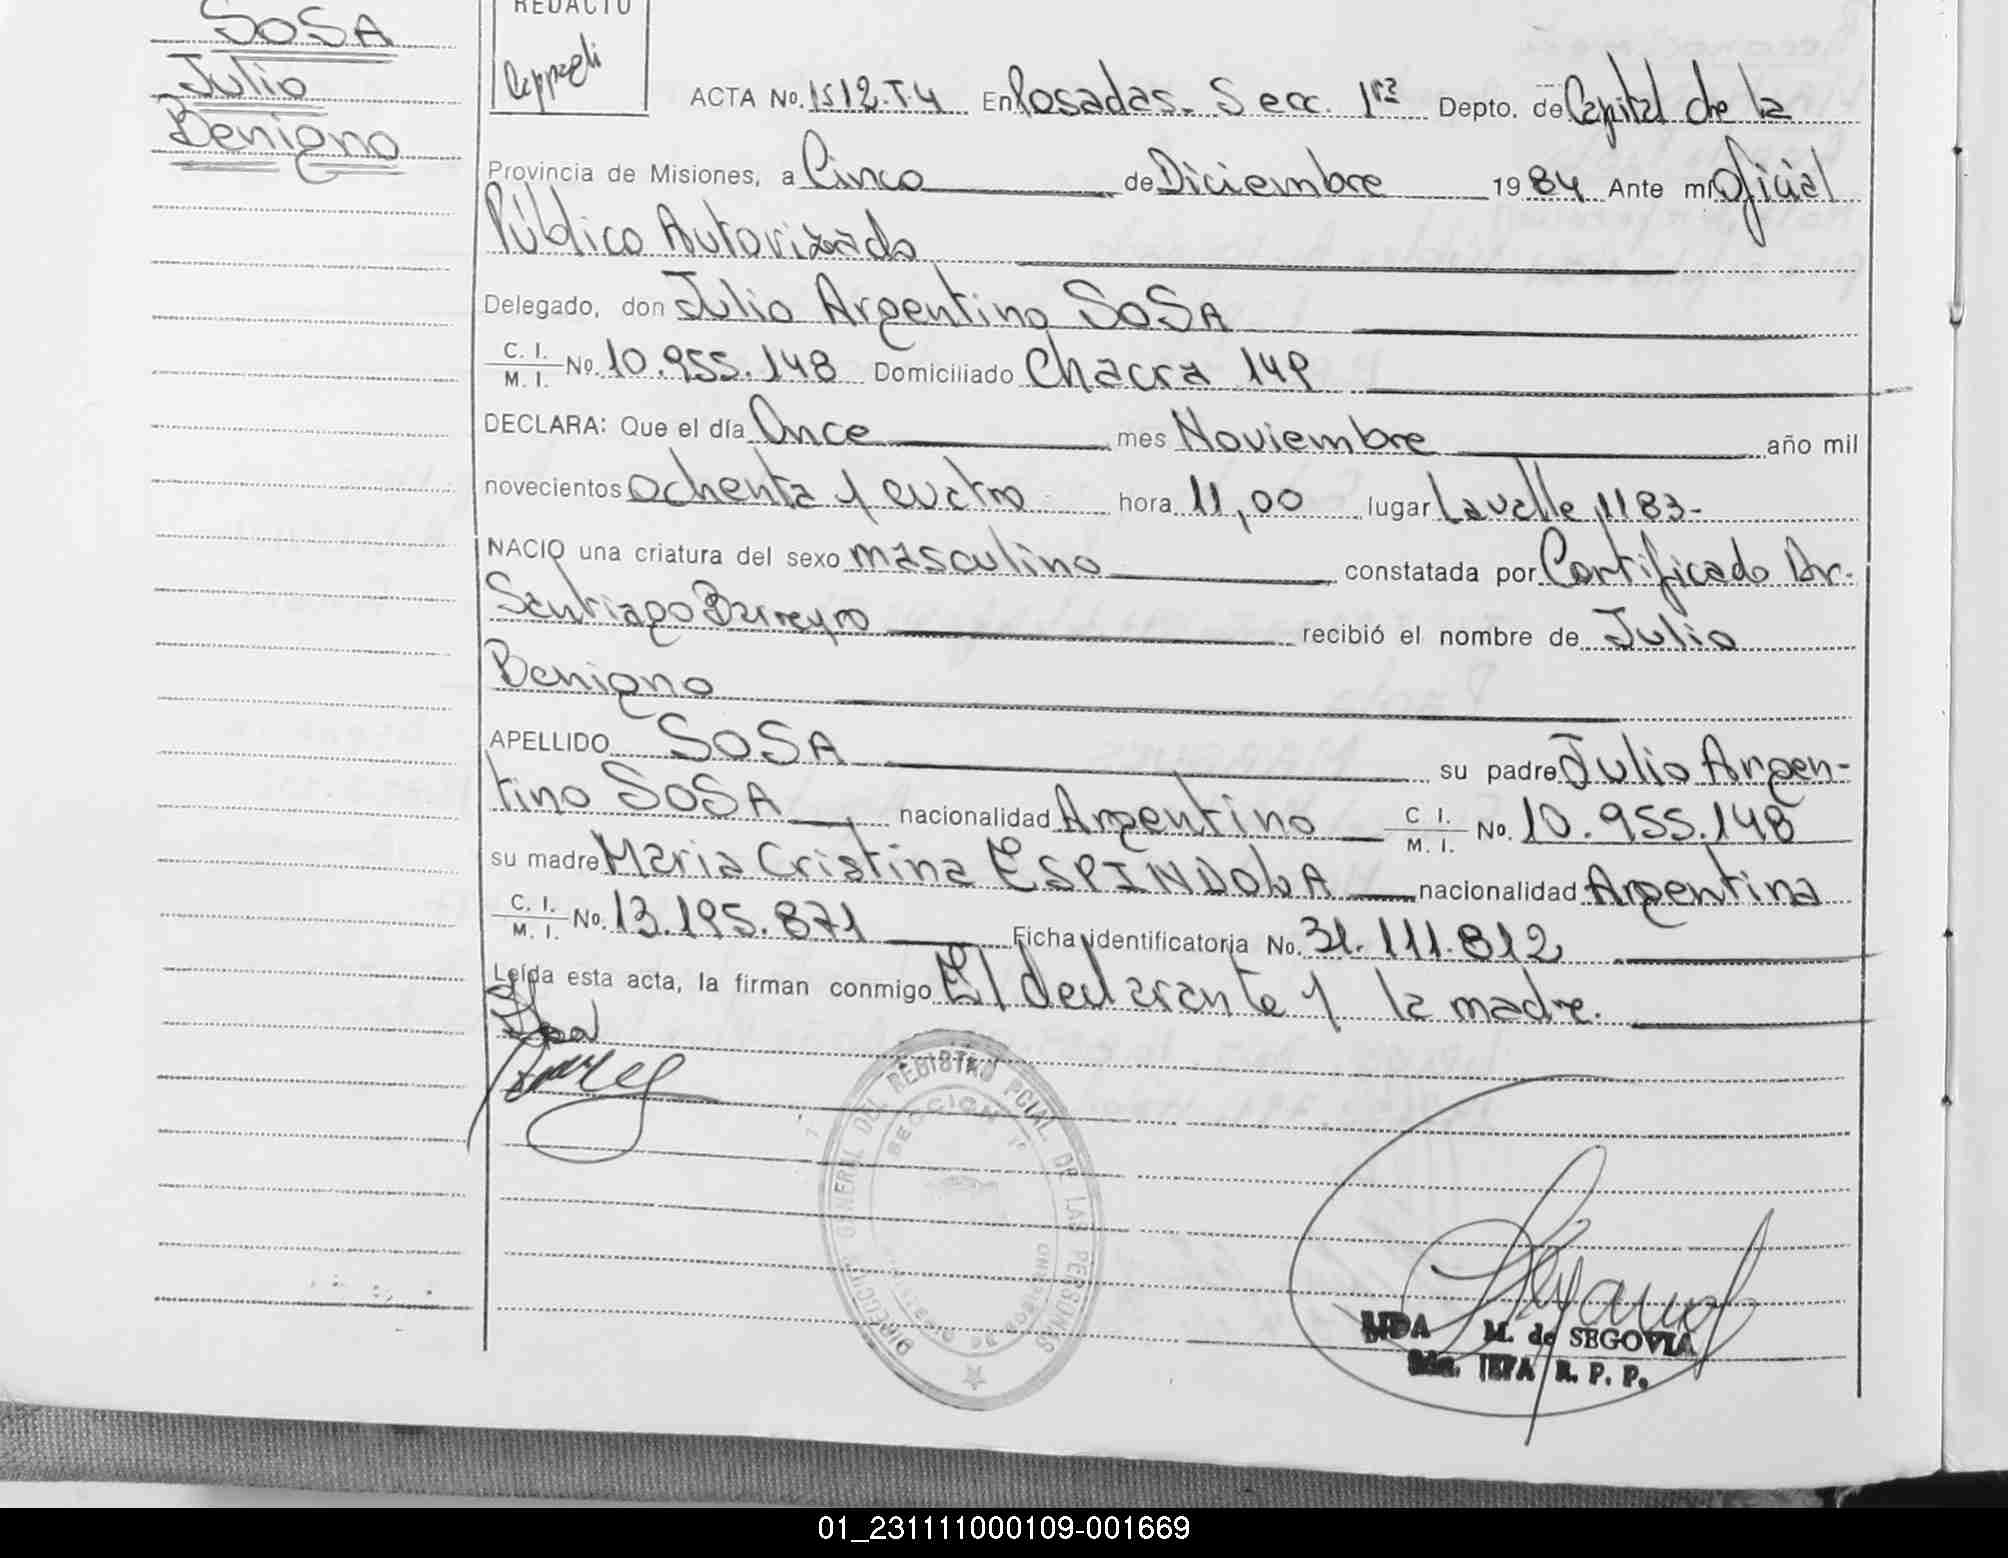 SOSA
Julio
Benigno
REDACTO
ACTA No. 1512.T.4 En Posadas. Secc. 1ra Depto. de Capital de la
Provincia de Misiones, a Cinco de Diciembre 1984 Ante mi Oficial
Público Autorizado
Delegado, don Julio Argentino SOSA
C. I. / M. I. No. 10.955.148 Domiciliado Chacra 149
DECLARA: Que el día Once mes Noviembre año mil
novecientos ochenta y cuatro hora 11,00 lugar Lavalle 1183-
NACIO una criatura del sexo masculino constatada por Certificado Dr.
Santiago Barreyro recibió el nombre de Julio
Benigno
APELLIDO SOSA su padre Julio Argen-
tino SOSA nacionalidad Argentino C. I. / M. I. No. 10.955.148
su madre Maria Cristina ESPINDOLA nacionalidad Argentina
C. I. / M. I. No. 13.195.871 Ficha identificatoria No. 31.111.812
Leída esta acta, la firman conmigo El declarante y la madre.
DIRECCION GENERAL DEL REGISTRO PCIAL. DE LAS PERSONAS
SECCION 1º
MINISTERIO DE GOBIERNO
LIDA M. de SEGOVIA
R. P. P.
01_231111000109-001669